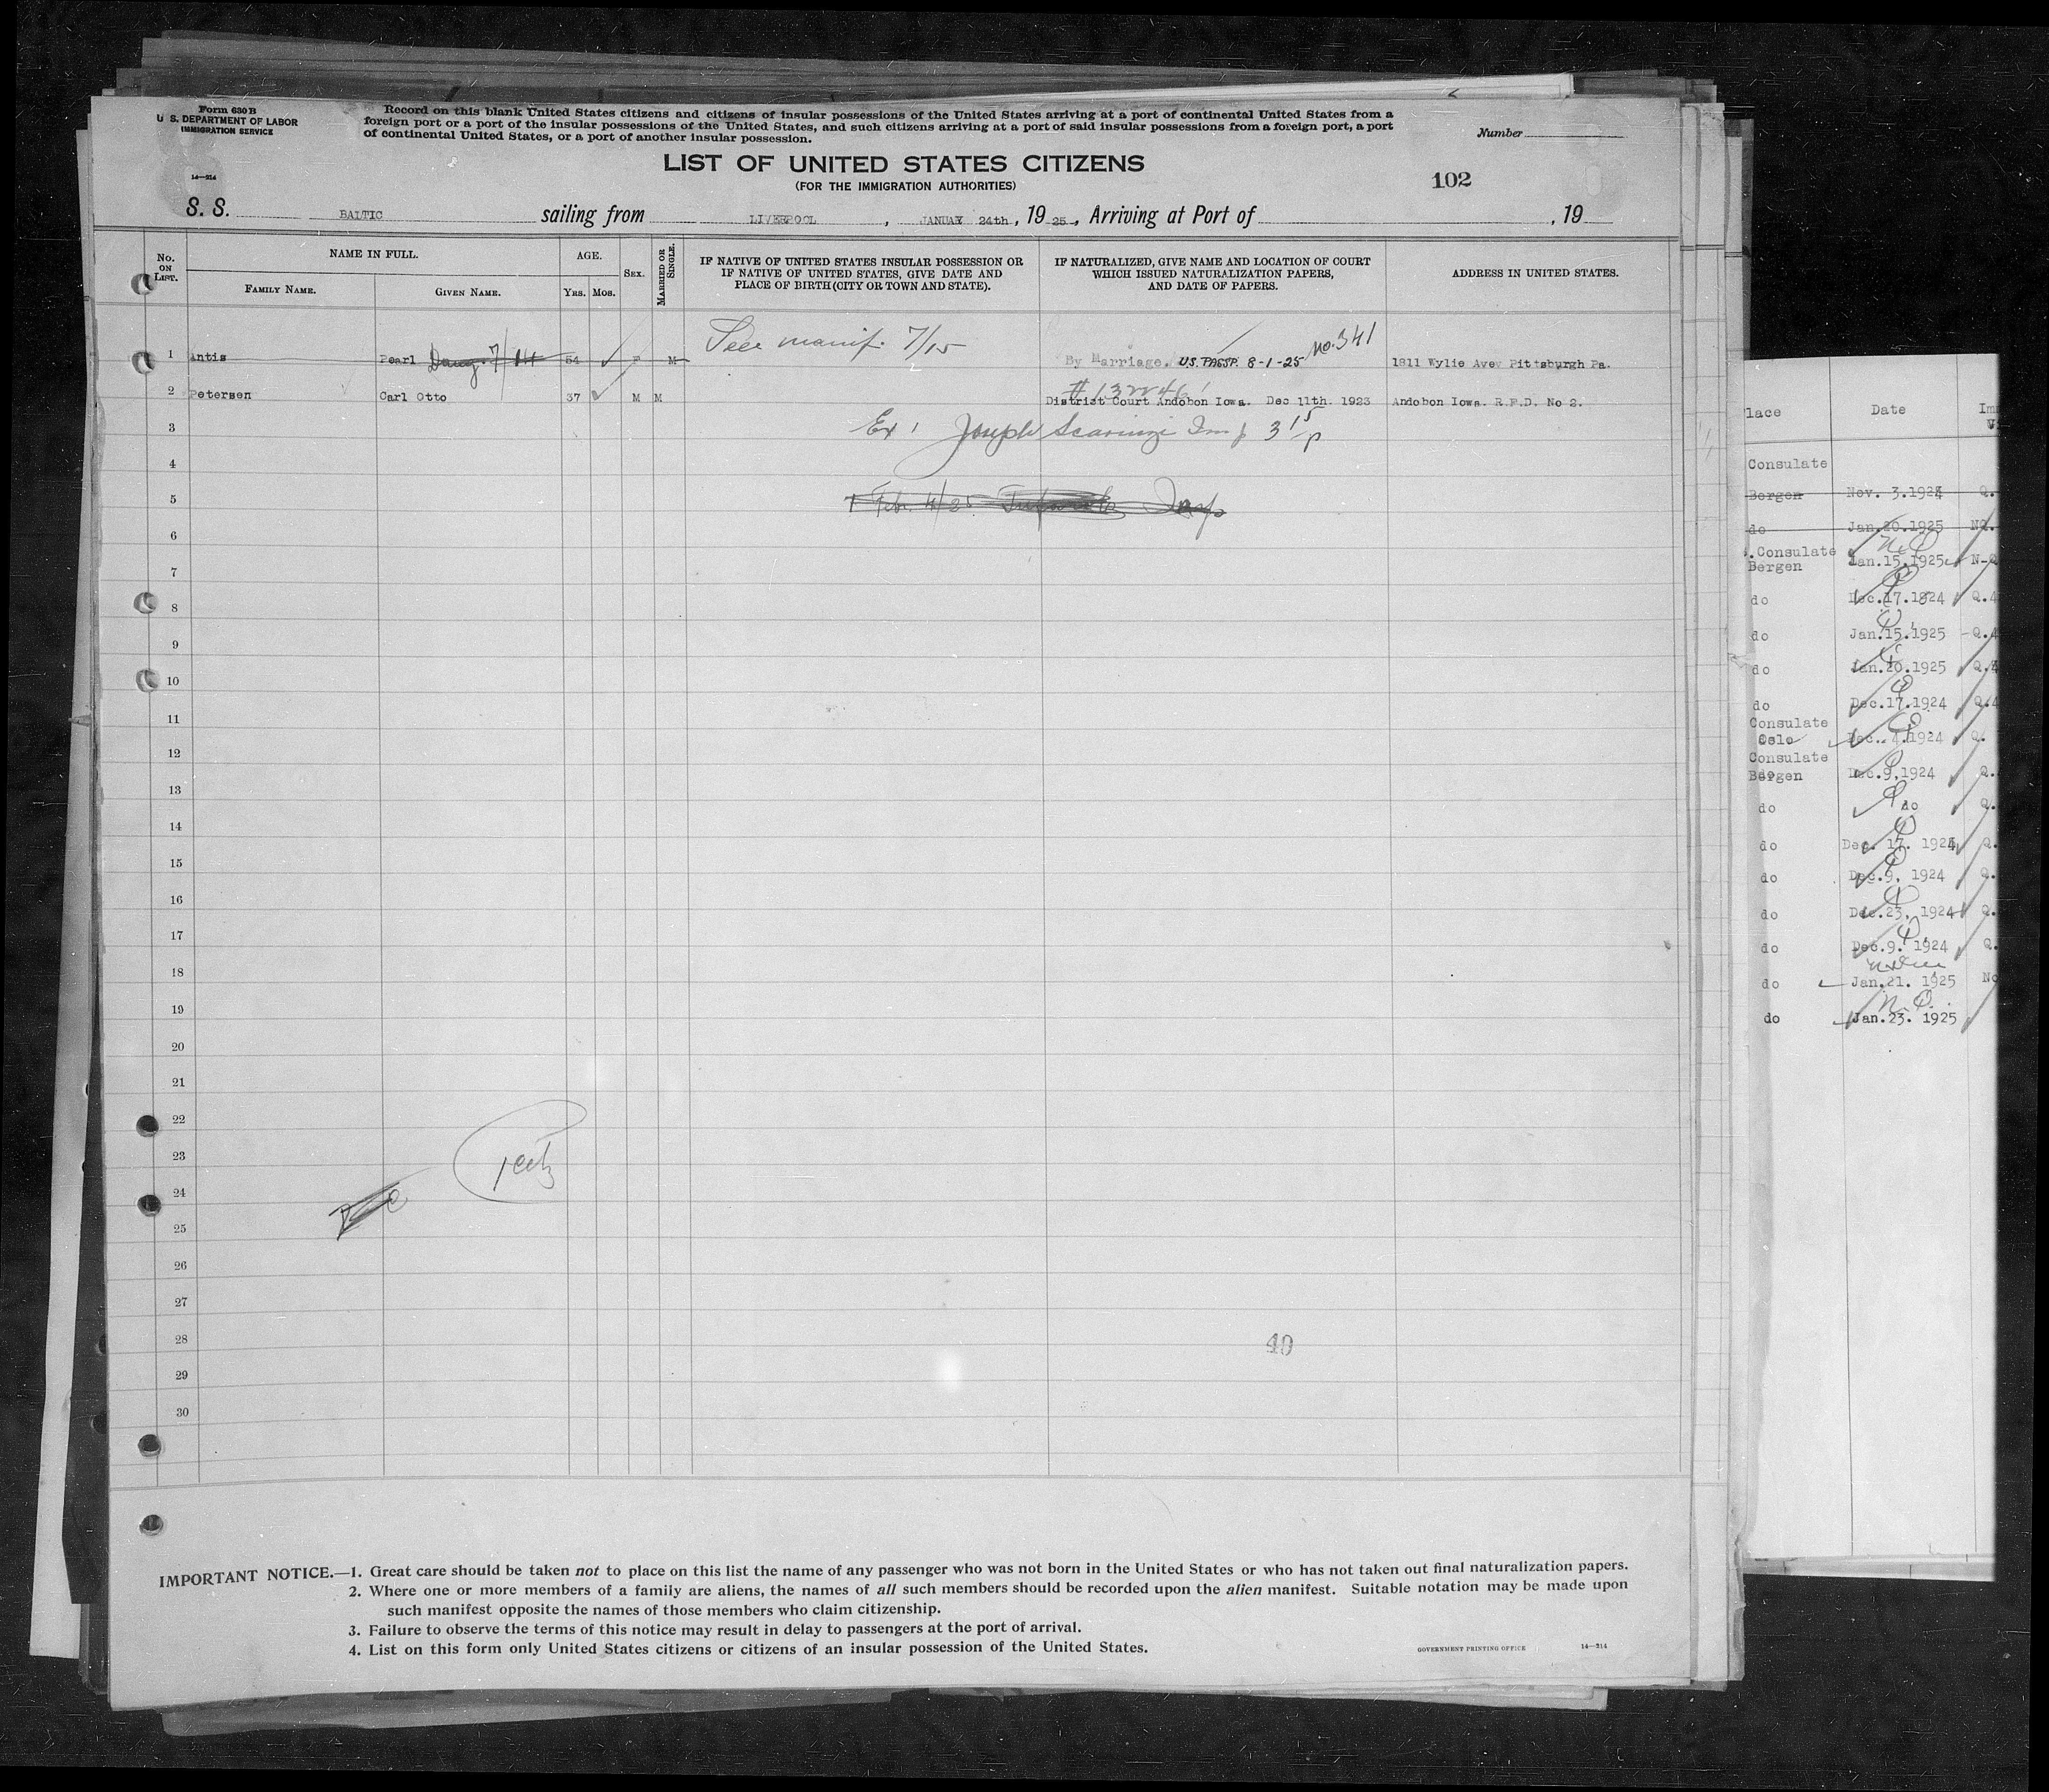 Form 630 B
U. S. DEPARTMENT OF LABOR
IMMIGRATION SERVICE
14—214
Record on this blank United States citizens and citizens of insular possessions of the United States arriving at a port of continental United States from a
foreign port or a port of the insular possessions of the United States, and such citizens arriving at a port of said insular possessions from a foreign port, a port
of continental United States, or a port of another insular possession.
Number
LIST OF UNITED STATES CITIZENS
(FOR THE IMMIGRATION AUTHORITIES)
102
S. S. BALTIC sailing from LIVERPOOL, JANUAY 24th, 19 25, Arriving at Port of , 19
No. ON LIST.
NAME IN FULL.
FAMILY NAME.
GIVEN NAME.
AGE.
YRS. MOS.
SEX.
MARRIED OR SINGLE.
IF NATIVE OF UNITED STATES INSULAR POSSESSION OR
IF NATIVE OF UNITED STATES, GIVE DATE AND
PLACE OF BIRTH (CITY OR TOWN AND STATE).
IF NATURALIZED, GIVE NAME AND LOCATION OF COURT
WHICH ISSUED NATURALIZATION PAPERS,
AND DATE OF PAPERS.
ADDRESS IN UNITED STATES.
See manif. 7/15
1 Antis Pearl 7/14 54 F M By Marriage. U.S. PASSP. 8-1-25 No. 341 1811 Wylie Ave Pittsburgh Pa.
2 Petersen Carl Otto 37 M M District Court Andobon Iowa. Dec 11th. 1923 Andobon Iowa. R.F.D. No 2.
3 Joseph
4
5 Feb. 4/25 Insp
6
7
8
9
10
11
12
13
14
15
16
17
18
19
20
21
22
23
24
25
26
27
28 40
29
30
IMPORTANT NOTICE.—1. Great care should be taken not to place on this list the name of any passenger who was not born in the United States or who has not taken out final naturalization papers.
2. Where one or more members of a family are aliens, the names of all such members should be recorded upon the alien manifest. Suitable notation may be made upon
such manifest opposite the names of those members who claim citizenship.
3. Failure to observe the terms of this notice may result in delay to passengers at the port of arrival.
4. List on this form only United States citizens or citizens of an insular possession of the United States.
GOVERNMENT PRINTING OFFICE 14—214
lace Date
Consulate
Bergen Nov. 3.1924 Q.
do Jan.20.1925 NQ.
.Consulate
Bergen Jan.15.1925 N-Q
do Dec.17.1924 Q.4
do Jan.15.1925 Q.4
do Jan.20.1925 Q.4
do Dec.17.1924 Q.4
Consulate
Oslo Dec. 4.1924 Q.
Consulate
Bergen Dec.9.1924 Q.
do do Q.
do Dec. 17. 1924 Q.
do Dec.9. 1924 Q.
do Dec.23. 1924 Q.
do Dec.9. 1924 Q.
do Jan.21. 1925 No
do Jan.23. 1925